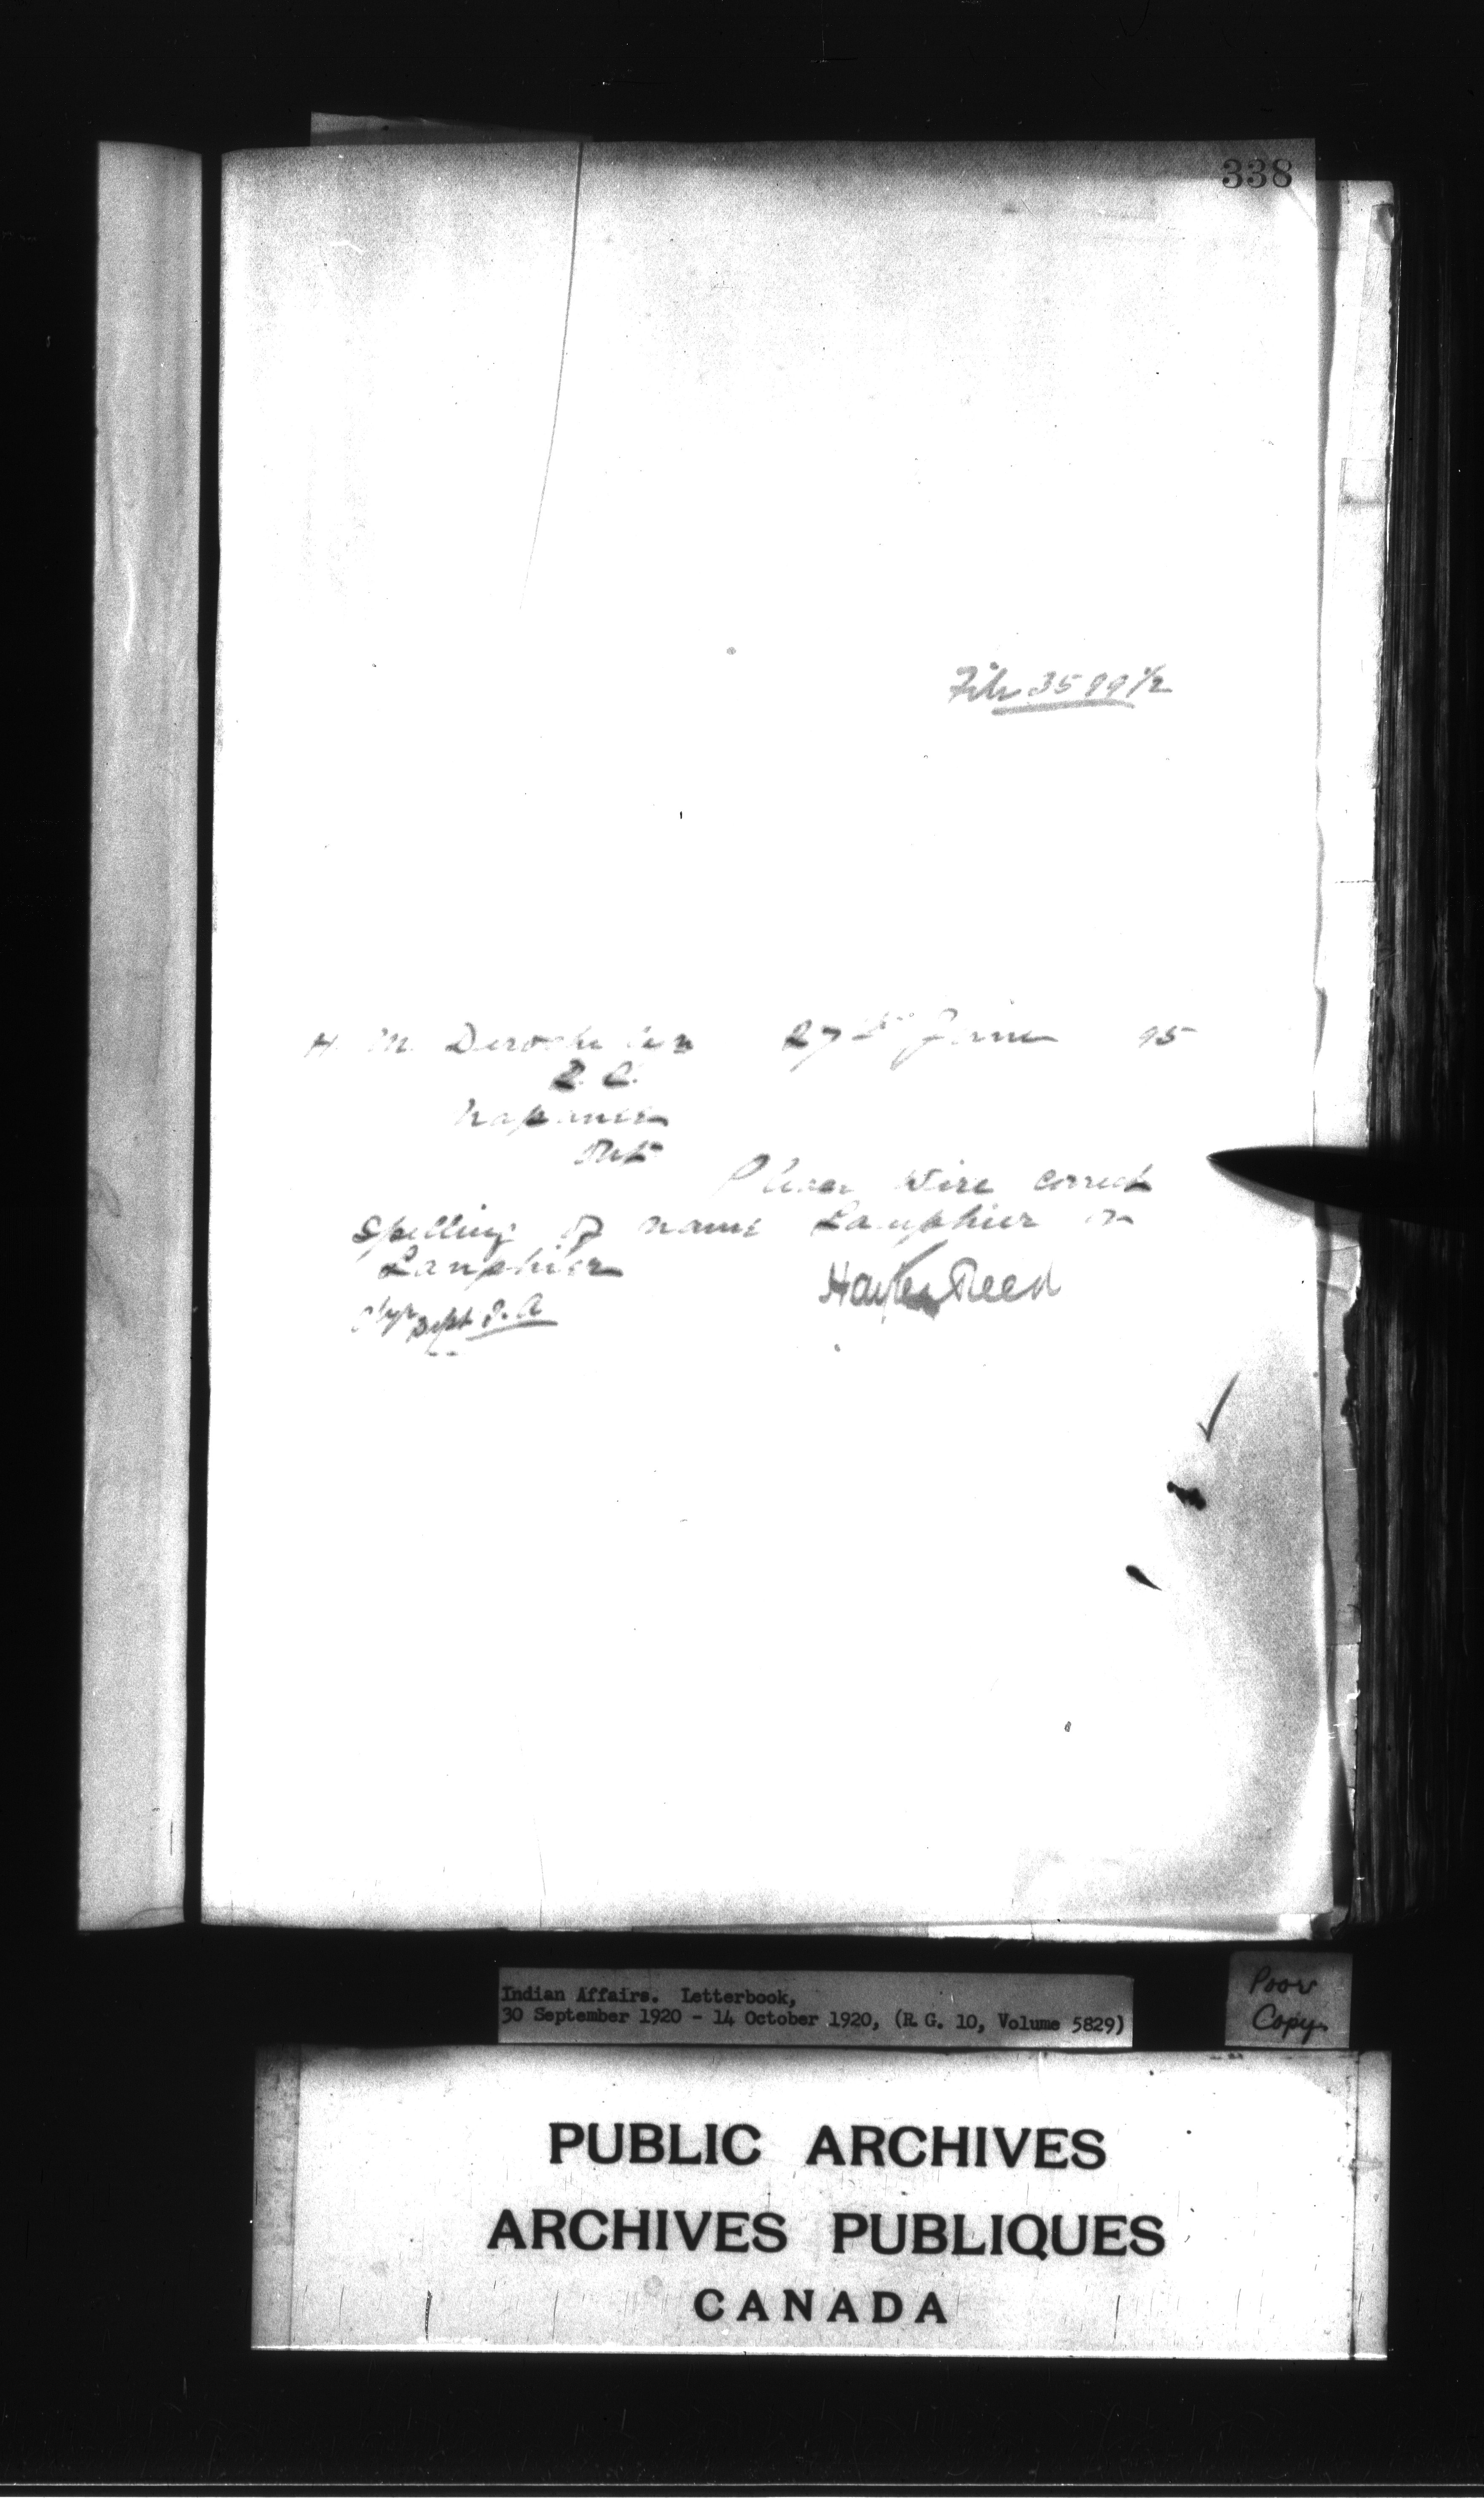 338
File 3599 1/2
H. M. Deroche Esq 27th June 95
Q. C.
Napanee
Ont
Please wire correct
spelling of name Lamphier or
Lanphier
Hayter Reed
Chge Dept I. A
Indian Affairs. Letterbook,
30 September 1920 - 14 October 1920, (R. G. 10, Volume 5829)
Poor
Copy
PUBLIC ARCHIVES
ARCHIVES PUBLIQUES
CANADA